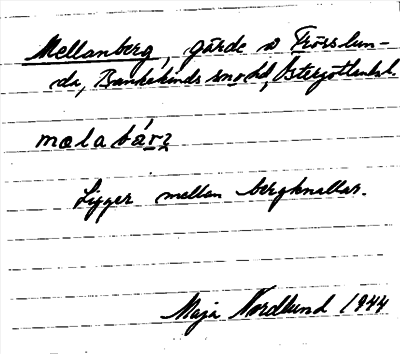 Mellanberg, gärde å Frösslun-
da, Bankekinds snohd, Östergötlands l.
mælabár₂
Ligger mellan bergknallar.
Maja Nordlund 1944